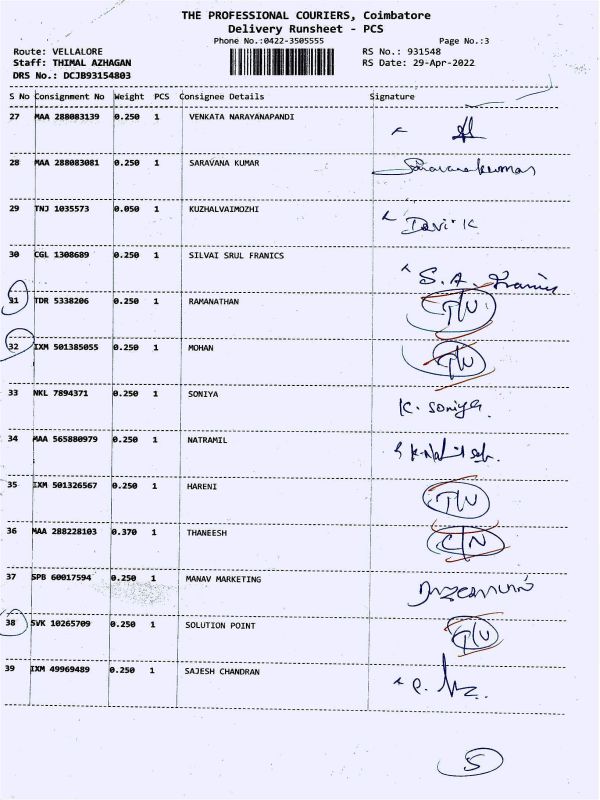 THE PROFESSIONAL COURIERS, Coimbatore
Delivery Runsheet - PCS
Phone No.:0422-3505555 Page No.:3
Route: VELLALORE RS No.: 931548
Staff: THIMAL AZHAGAN RS Date: 29-Apr-2022
DRS No.: DCJB93154803
S No Consignment No Weight PCS Consignee Details Signature
27 MAA 288083139 0.250 1 VENKATA NARAYANAPANDI
28 MAA 288083081 0.250 1 SARAVANA KUMAR Saravanakumar
29 TNJ 1035573 0.050 1 KUZHALVAIMOZHI Devi K
30 CGL 1308689 0.250 1 SILVAI SRUL FRANICS S. A. Franics
31 TDR 5338206 0.250 1 RAMANATHAN T/U
32 IXM 501385055 0.250 1 MOHAN T/U
33 NKL 7894371 0.250 1 SONIYA K. Soniya.
34 MAA 565880979 0.250 1 NATRAMIL
35 IXM 501326567 0.250 1 HARENI T/U
36 MAA 288228103 0.370 1 THANEESH C/N
37 SPB 60017594 0.250 1 MANAV MARKETING
38 SVK 10265709 0.250 1 SOLUTION POINT T/U
39 IXM 49969489 0.250 1 SAJESH CHANDRAN
5